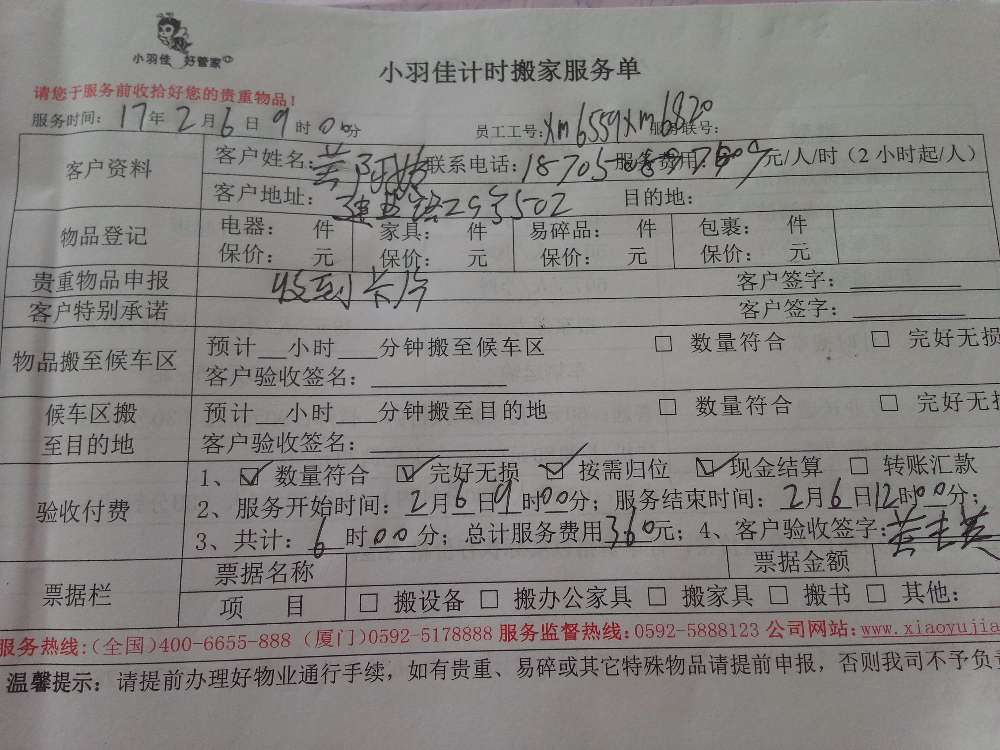 小羽佳 好管家
小羽佳计时搬家服务单
请您于服务前收拾好您的贵重物品！
服务时间：17年2月6日9时00分 员工工号：xm6559xm6820 服务联号：
客户资料 客户姓名： 阿姨 联系电话：18705 服务费用： 元/人/时（2小时起/人）
客户地址： 29号502 目的地：
物品登记 电器： 件 家具： 件 易碎品： 件 包裹： 件
保价： 元 保价： 元 保价： 元 保价： 元
贵重物品申报 收到卡片 客户签字：
客户特别承诺 客户签字：
物品搬至候车区 预计___小时___分钟搬至候车区 □ 数量符合 □ 完好无损
客户验收签名：
候车区搬至目的地 预计___小时___分钟搬至目的地 □ 数量符合 □ 完好无损
客户验收签名：
验收付费 1、☑ 数量符合 ☑ 完好无损 ☑ 按需归位 ☑ 现金结算 □ 转账汇款
2、服务开始时间：2月6日9时00分；服务结束时间：2月6日12时00分；
3、共计：6时00分；总计服务费用360元；4、客户验收签字：
票据栏 票据名称 票据金额
项 目 □ 搬设备 □ 搬办公家具 □ 搬家具 □ 搬书 □ 其他：
服务热线：（全国）400-6655-888（厦门）0592-5178888 服务监督热线：0592-5888123 公司网站：www.xiaoyujia
温馨提示：请提前办理好物业通行手续，如有贵重、易碎或其它特殊物品请提前申报，否则我司不予负责